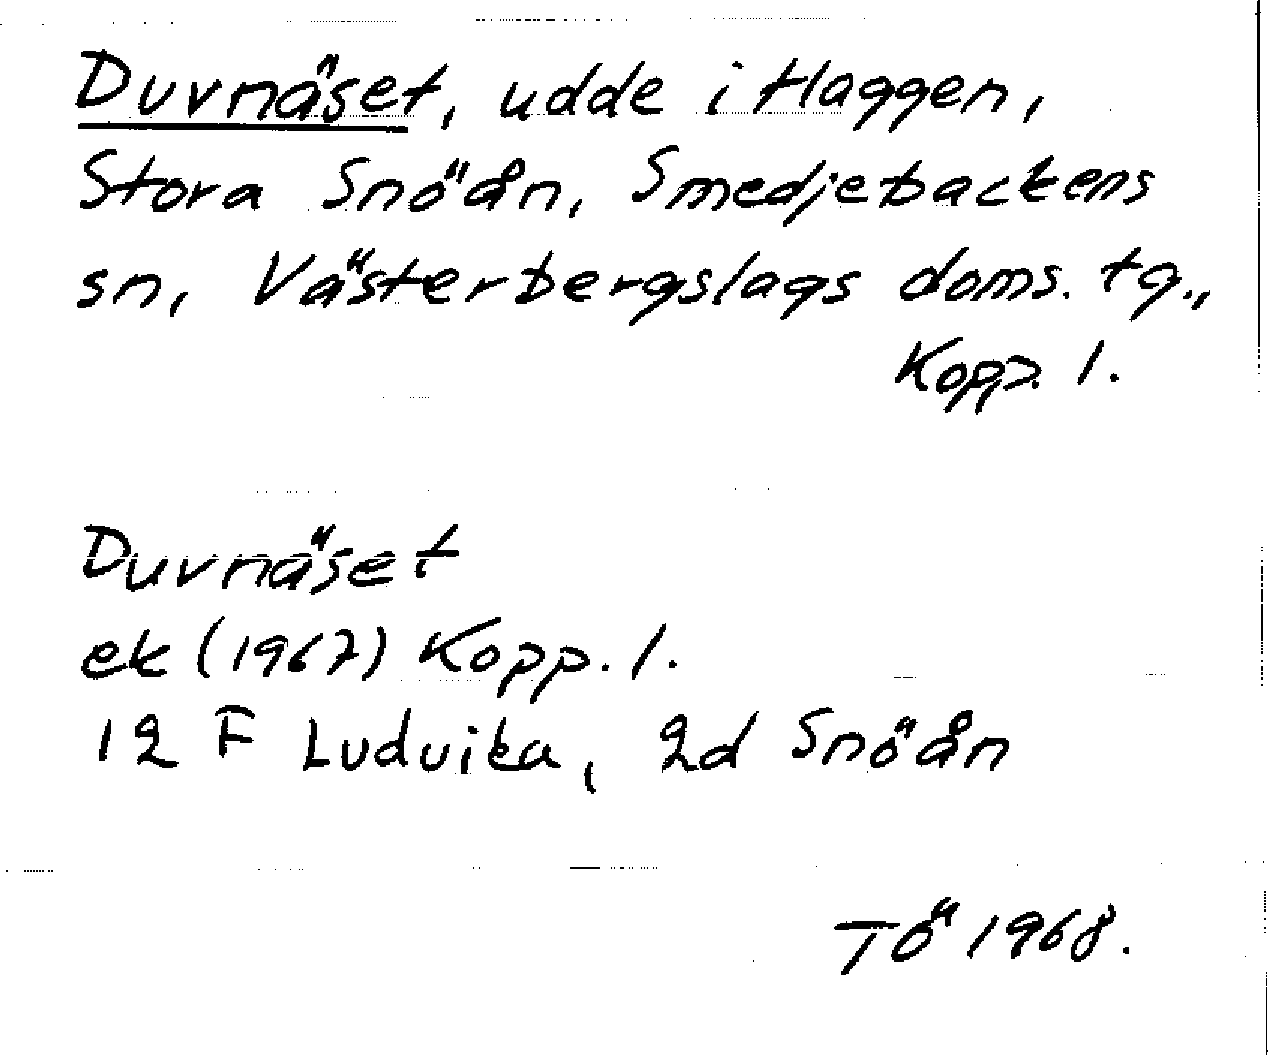 Duvnäset, udde i Haggen,
Stora Snöån, Smedjebackens
sn, Västerbergslags doms. tg.,
Kopp. l.
Duvnäset
ek (1967) Kopp. l.
12 F Ludvika, 2d Snöån
TÖ 1968.